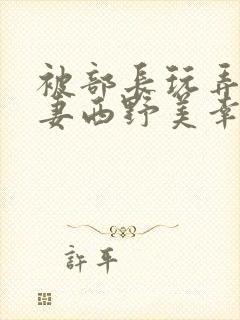 被部長玩弄
妻西野美幸
許平